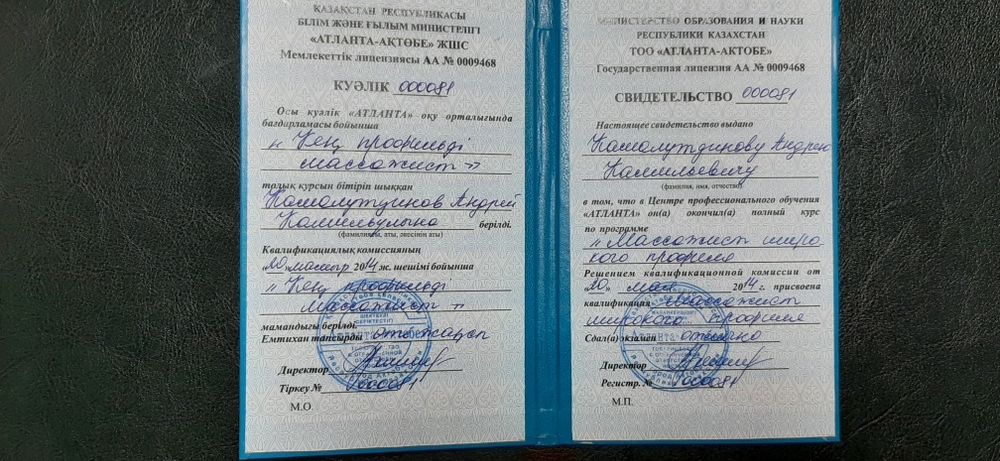 ҚАЗАҚСТАН РЕСПУБЛИКАСЫ
БІЛІМ ЖӘНЕ ҒЫЛЫМ МИНИСТРЛІГІ
«АТЛАНТА-АҚТӨБЕ» ЖШС
Мемлекеттік лицензиясы АА № 0009468
КУӘЛІК 000081
Осы куәлік «АТЛАНТА» оқу орталығында
бағдарламасы бойынша
« Кең профильді
массажист »
толық курсын бітіріп шыққан
Камалутдинов Андрей
Камильұлына берілді.
(фамилиясы, аты, әкесінің аты)
Квалификациялық комиссияның
«20» мамыр 2014 ж. шешімі бойынша
« Кең профильді
Массажист »
мамандығы берілді.
Емтихан тапсырды өте жақсы
Директор
Тіркеу № 000081
М.О.
МИНИСТЕРСТВО ОБРАЗОВАНИЯ И НАУКИ
РЕСПУБЛИКИ КАЗАХСТАН
ТОО «АТЛАНТА-АКТОБЕ»
Государственная лицензия АА № 0009468
СВИДЕТЕЛЬСТВО 000081
Настоящее свидетельство выдано
Камалутдинову Андрею
Камильевичу
(фамилия, имя, отчество)
в том, что в Центре профессионального обучения
«АТЛАНТА» он(а) окончил(а) полный курс
по программе
« Массажист широ
кого профиля
Решением квалификационной комиссии от
«20» мая 2014 г. присвоена
квалификация Массажист
широкого профиля
Сдал(а) экзамен отлично
Директор
Регистр. № 000081
М.П.